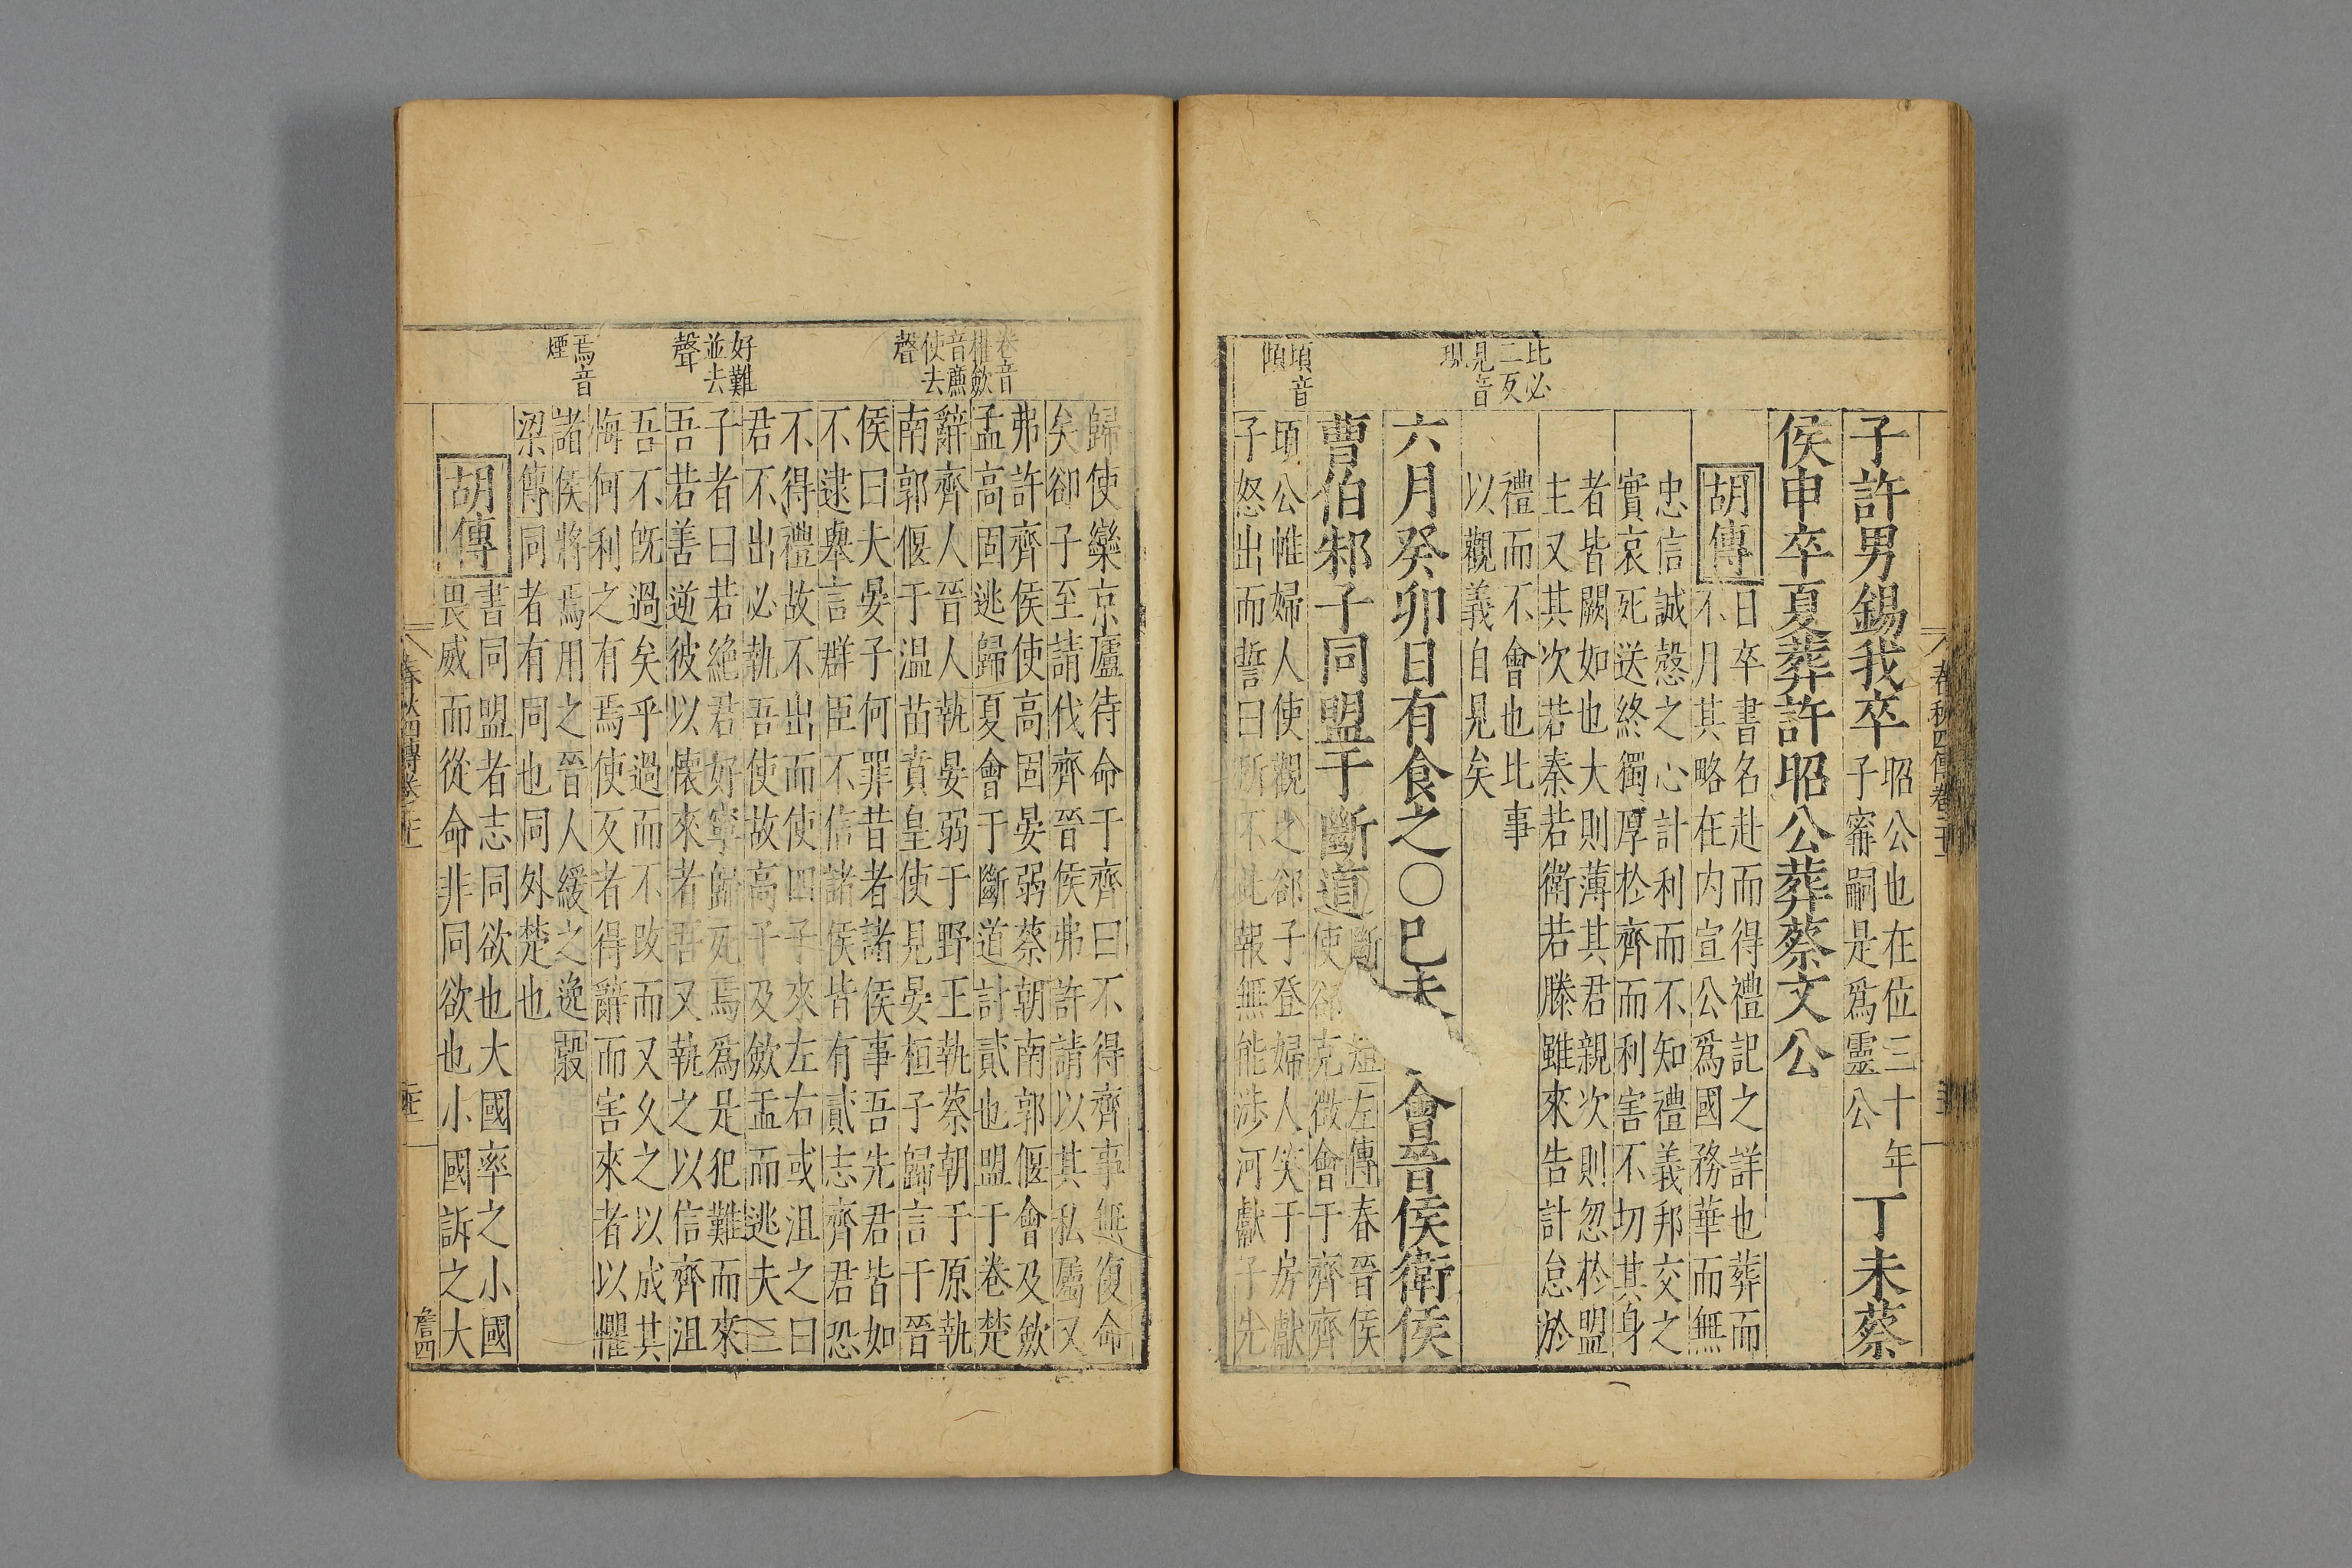 春秋四傳卷二十
子許男錫我卒
昭公也在位三十年
子甯嗣是爲靈公
丁未蔡
侯申卒夏葬許昭公葬蔡文公
胡傳
日卒書名赴而得禮記之詳也葬而
不月其略在内宣公爲國務華而無
忠信誠慤之心計利而不知禮義邦交之
實哀死送終獨厚於齊而利害不切其身
者皆闕如也大則薄其君親次則忽於盟
主又其次若秦若衛若滕雖來告計怠於
禮而不會也比事
以觀義自見矣
比必
二反
見音
現
六月癸卯日有食之○巳未
會晉侯衛侯
曹伯邾子同盟于斷道
斷
短左傳春晉侯
使郤克徵會于齊齊
頃公帷婦人使觀之郤子登婦人笑于房獻
子怒出而誓曰所不此報無能涉河獻子先
頃音
傾
歸使欒京廬待命于齊曰不得齊事無復命
矣郤子至請伐齊晉侯弗許請以其私屬又
弗許齊侯使高固晏弱蔡朝南郭偃會及斂
孟高固逃歸夏會于斷道討貳也盟于卷楚
辭齊人晉人執晏弱于野王執蔡朝于原執
南郭偃于温苗賁皇使見晏桓子歸言于晉
侯曰夫晏子何罪昔者諸侯事吾先君皆如
不逮舉言群臣不信諸侯皆有貳志齊君恐
不得禮故不出而使四子來左右或沮之曰
君不出必執吾使故高子及斂盂而逃夫三
子者曰若絶君好寧歸死焉爲是犯難而來
吾若善逆彼以懷來者吾又執之以信齊沮
吾不旣過矣乎過而不改而又久之以成其
悔何利之有焉使反者得辭而害來者以懼
諸侯將焉用之晉人緩之逸穀
梁傳同者有同也同外楚也
卷音
權斂
音廉
使去
聲
好難
並去
聲
焉音
煙
胡傳
書同盟者志同欲也大國率之小國
畏威而從命非同欲也小國訴之大
春秋四傳卷二十
詹四